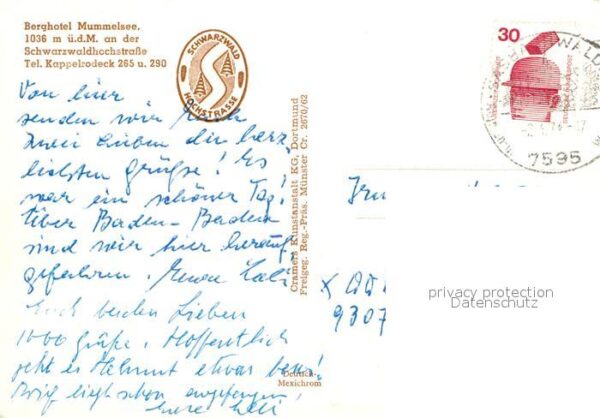 Berghotel Mummelsee,
1036 m ü.d.M. an der
Schwarzwaldhochstraße
Tel. Kappelrodeck 265 u. 290
SCHWARZWALD
HOCHSTRASSE
30
7595
Von hier
senden wir Euch
zwei Lieben die herz
lichsten Grüße! Es
war ein schöner Tag,
über Baden-Baden
sind wir hier herauf
gefahren. Eure Lali
Euch beiden Lieben
1000 Grüße. Hoffentlich
geht es Helmut etwas
schon
Eure Lali
Cramers Kunstanstalt KG, Dortmund
Freigeg. Reg.-Präs. Münster Cr. 2670/62
Deutsch-
Mexichrom
9307
privacy protection
Datenschutz